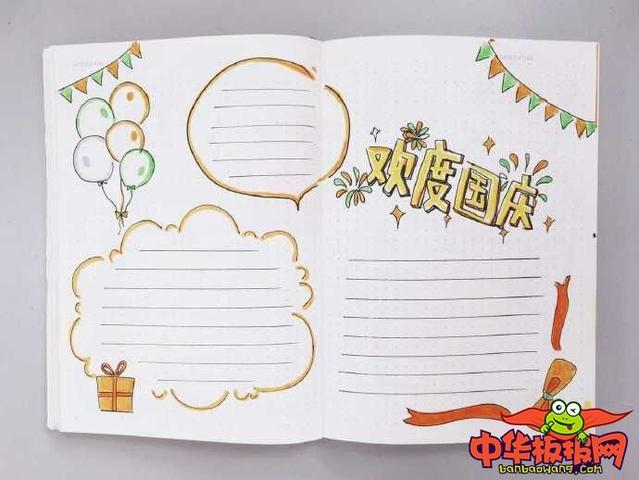 欢度国庆
中华板报网
banbaowang.com